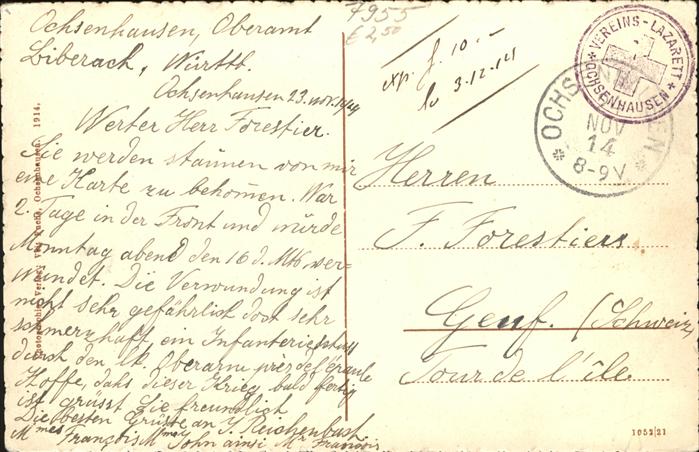 Ochsenhausen, Oberamt
Biberach, Württb.
Ochsenhausen 23. nov. 1914
Werter Herr Forestier.
Sie werden staunen von mir
eine Karte zu bekommen. War
2. Tage in der Front und wurde
Monntag abend den 16 d. Mts. ver=
wundet. Die Verwundung ist
nicht sehr gefährlich dost sehr
schmerzhaft, ein Infanterieschuss
durch den lk. Oberarm près de l'épaule
Hoffe, dahs dieser Krieg bald fertig
ist grüsst Sie freundlich
Die besten Grüsse an J. Reichenbach
Mmes François Mme John ainsi Mr Francois
7955
€ 2,50
exp. f. 10.-
le 3.12.14
VEREINS-LAZARETT
OCHSENHAUSEN
OCHSENHAUSEN
NOV
14
8-9V
Herren
F. Forestier
Genf. (Schweiz)
Tour de l'île
Ochsenhausen. 1914.
1052|21